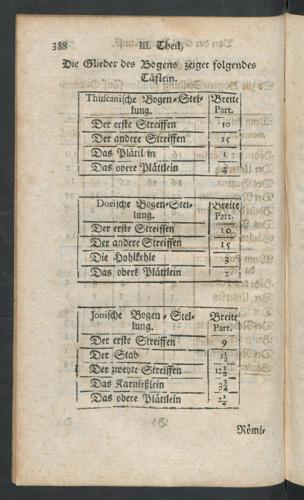 388 III. Theil,
Die Glieder des Bogens zeiget folgendes
Täflein.
Thuscanische Bogen-Stel- Breite
lung. Part.
Der erste Streiffen 10
Der andere Streiffen 15
Das Plättlein 1
Das obere Plättlein 4
Dorische Bogen-Stel- Breite
lung. Part.
Der erste Streiffen 10
Der andere Streiffen 15
Die Hohlkehle 3
Das obere Plättlein 2
Jonische Bogen-Stel- Breite
lung. Part.
Der erste Streiffen 9
Der Stab 1½
Der zweyte Streiffen 12½
Das Karnießlein 3¾
Das obere Plättlein 2¼
Römi-